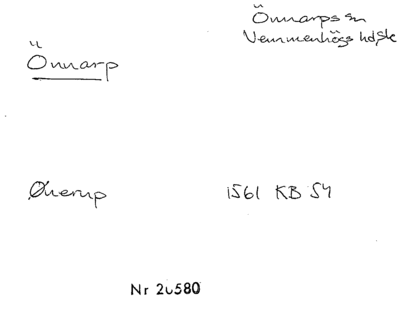 Önnarps sn
Vemmenhögs hd, Sk
Önnarp
Ønerup 1561 KB 54
Nr 20580